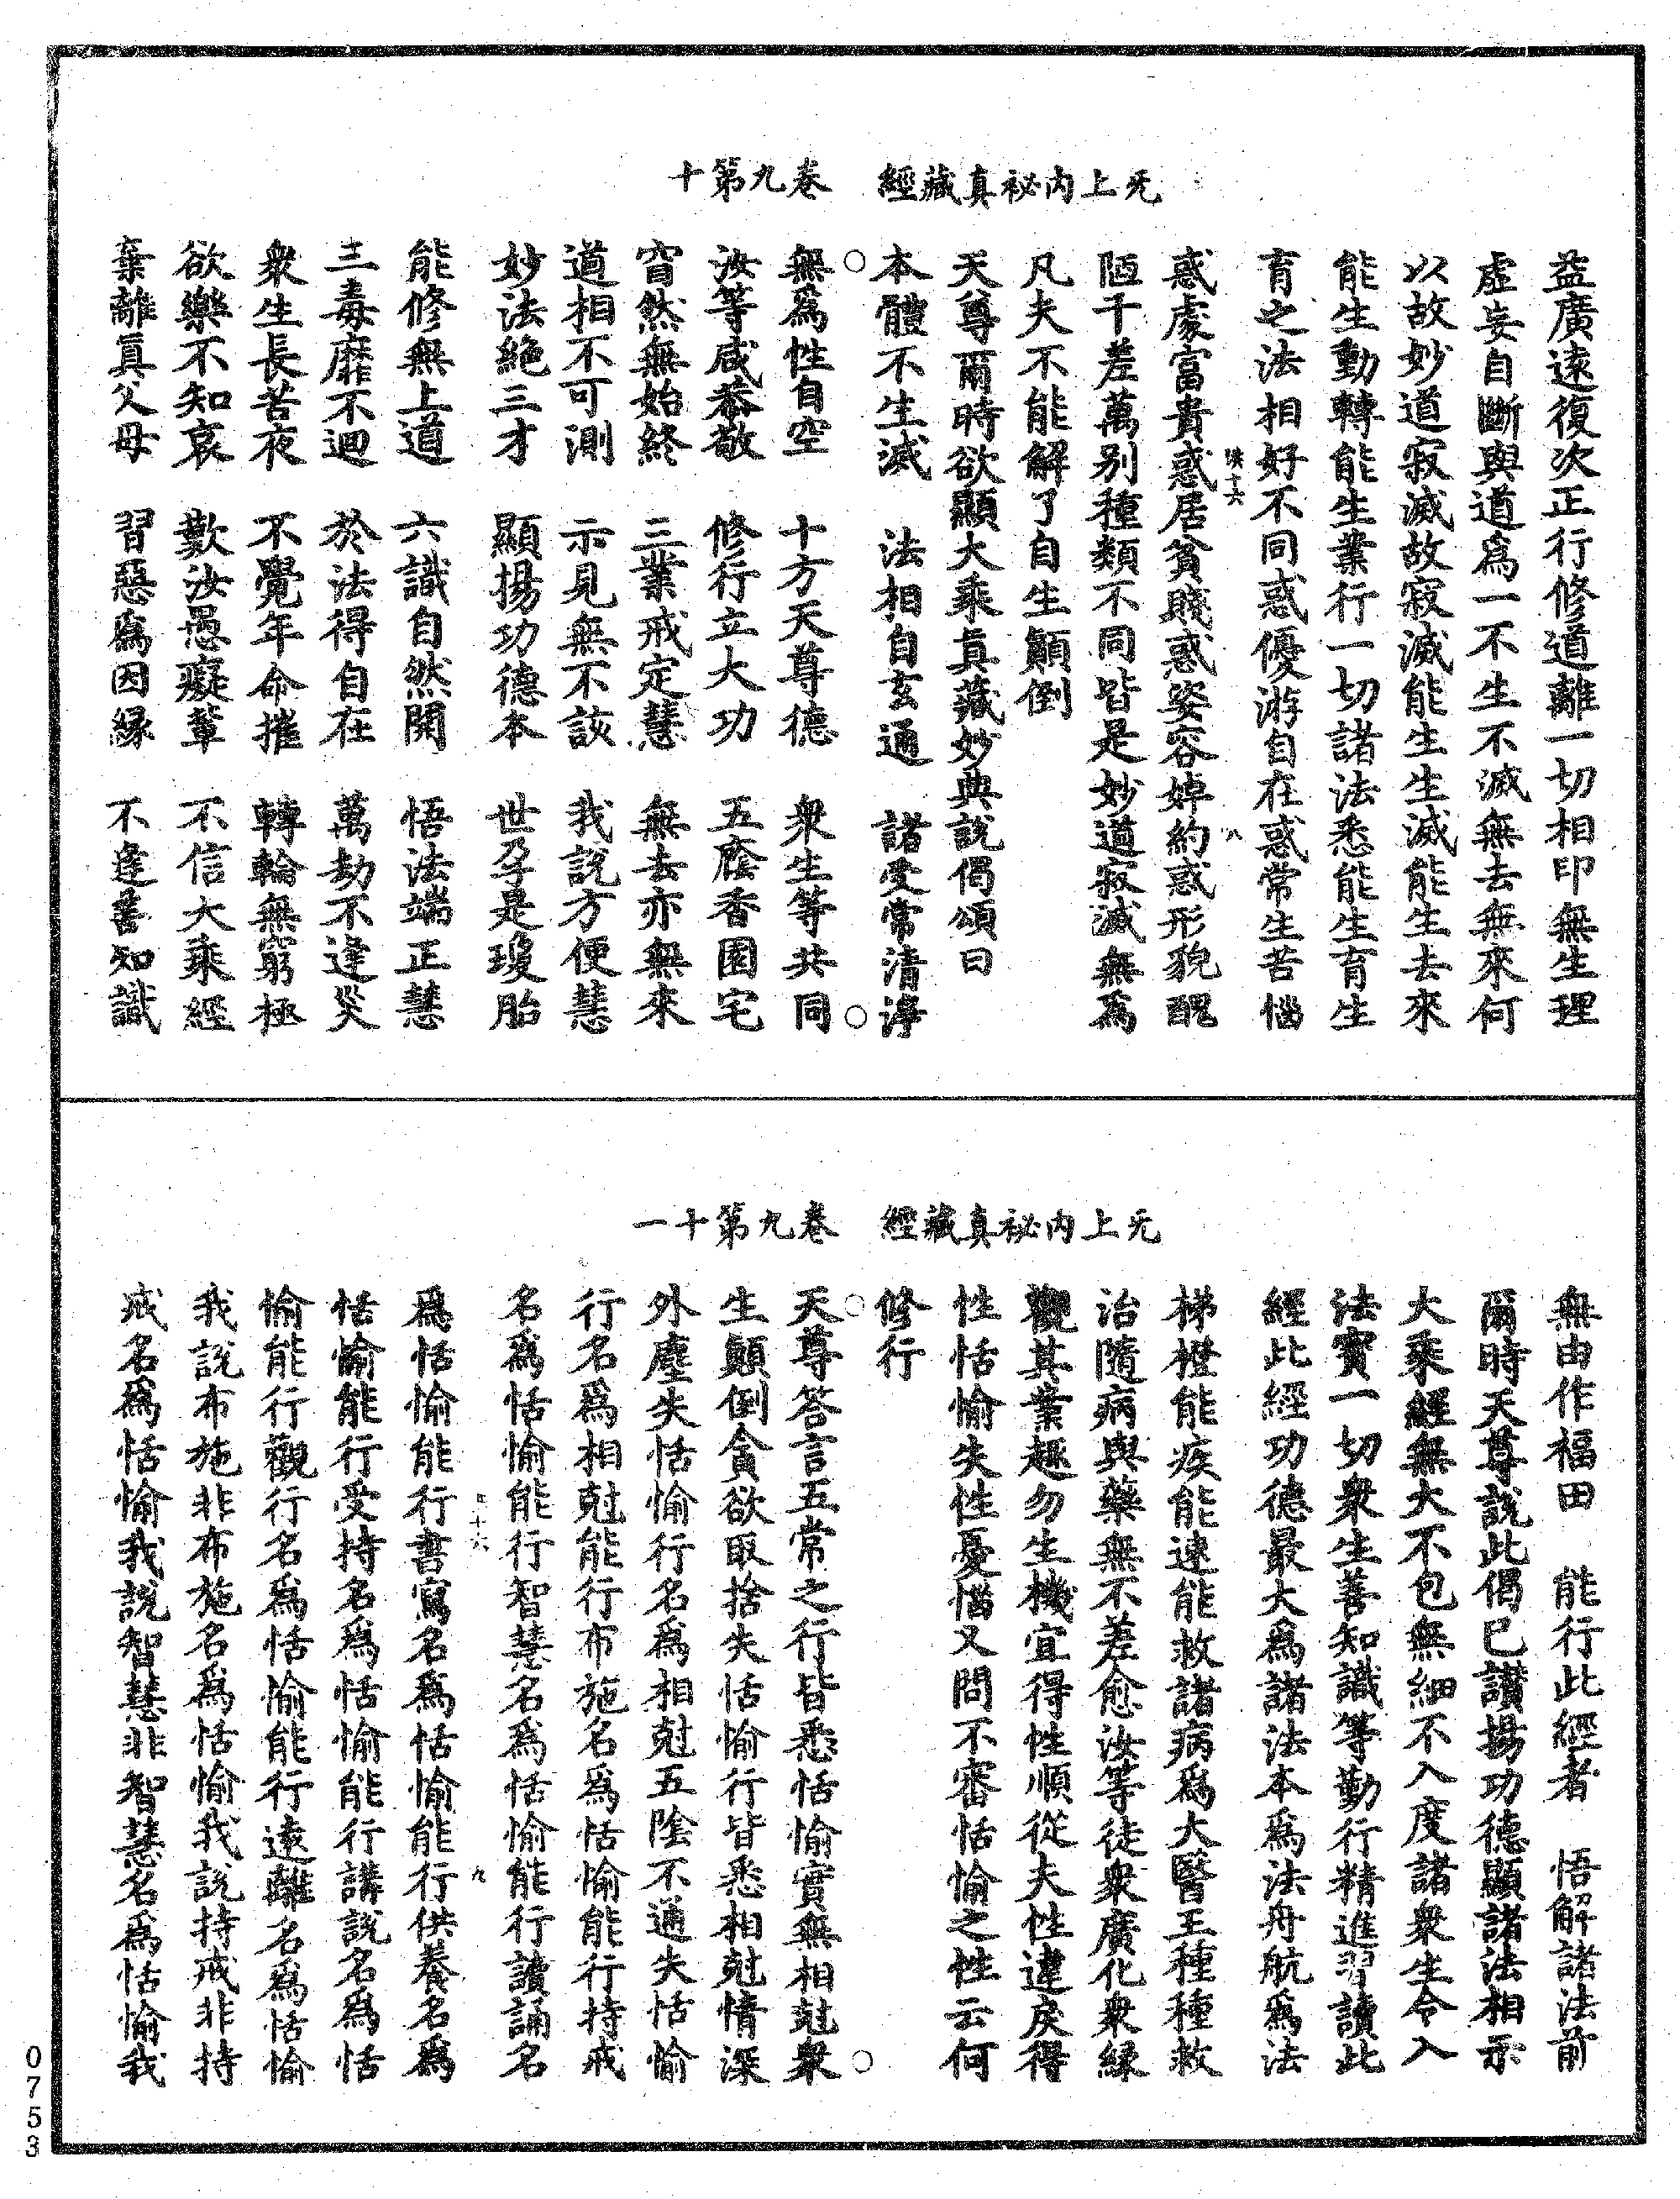 无上內祕真藏經　卷九第十
益廣遠復次正行修道離一切相印無生理
虛妄自斷與道爲一不生不滅無去無來何
以故妙道寂滅故寂滅能生生滅能生去來
能生動轉能生業行一切諸法悉能生育生
育之法相好不同惑優游自在惑常生苦惱
惑處富貴惑居貧賤惑姿容婥約惑形貌醜
陋千差萬別種類不同皆是妙道寂滅無爲
凡夫不能解了自生顛倒
天尊爾時欲顯大乘真藏妙典說偈頌曰
本體不生滅　法相自玄通　諸受常清淨
無爲性自空　十方天尊德　衆生等共同
汝等咸恭敬　修行立大功　五廕香園宅
窅然無始終　三業戒定慧　無去亦無來
道相不可測　示見無不該　我說方便慧
妙法絕三才　顯揚功德本　世孕是瓊胎
能修無上道　六識自然開　悟法端正慧
三毒靡不迴　於法得自在　萬劫不逢災
衆生長苦夜　不覺年命摧　轉輪無窮極
欲樂不知哀　歎汝愚癡輩　不信大乘經
棄離真父母　習惡爲因緣　不逢善知識
无上內祕真藏經　卷九第十一
無由作福田　能行此經者　悟解諸法前
爾時天尊說此偈已讚揚功德顯諸法相示
大乘經無大不包無細不入度諸衆生令入
法寶一切衆生善知識等勤行精進習讀此
經此經功德最大爲諸法本爲法舟航爲法
梯橙能疾能速能救諸病爲大醫王種種救
治隨病與藥無不差愈汝等徒衆廣化衆緣
觀其業趣勿生機宜得性順從夫性違戾得
性恬愉失性憂惱又問不審恬愉之性云何
修行
天尊答言五常之行皆悉恬愉實無相尅衆
生顛倒貪欲取捨失恬愉行皆悉相尅情深
外塵失恬愉行名爲相尅五陰不通失恬愉
行名爲相尅能行布施名爲恬愉能行持戒
名爲恬愉能行智慧名爲恬愉能行讀誦名
爲恬愉能行書寫名爲恬愉能行供養名爲
恬愉能行受持名爲恬愉能行講說名爲恬
愉能行觀行名爲恬愉能行遠離名爲恬愉
我說布施非布施名爲恬愉我說持戒非持
戒名爲恬愉我說智慧非智慧名爲恬愉我
0753